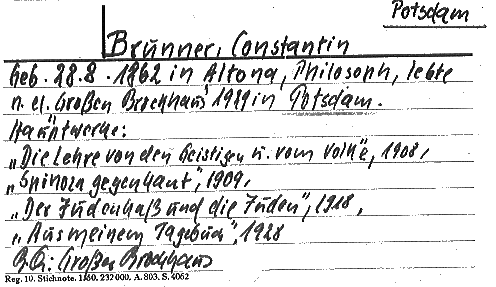 Potsdam
Brunner, Constantin
Geb. 28.8.1862 in Altona, Philosoph, lebte
n. d. Großen Brockhaus 1929 in Potsdam.
Hauptwerke:
„Die Lehre von den Geistigen u. vom Volke", 1908,
„Spinoza gegen Kant", 1909,
„Der Judenhaß und die Juden", 1918,
„Aus meinem Tagebuch", 1928
Großer Brockhaus
Reg. 10. Stichnote. 1160. 232000. A. 803. S. 4062